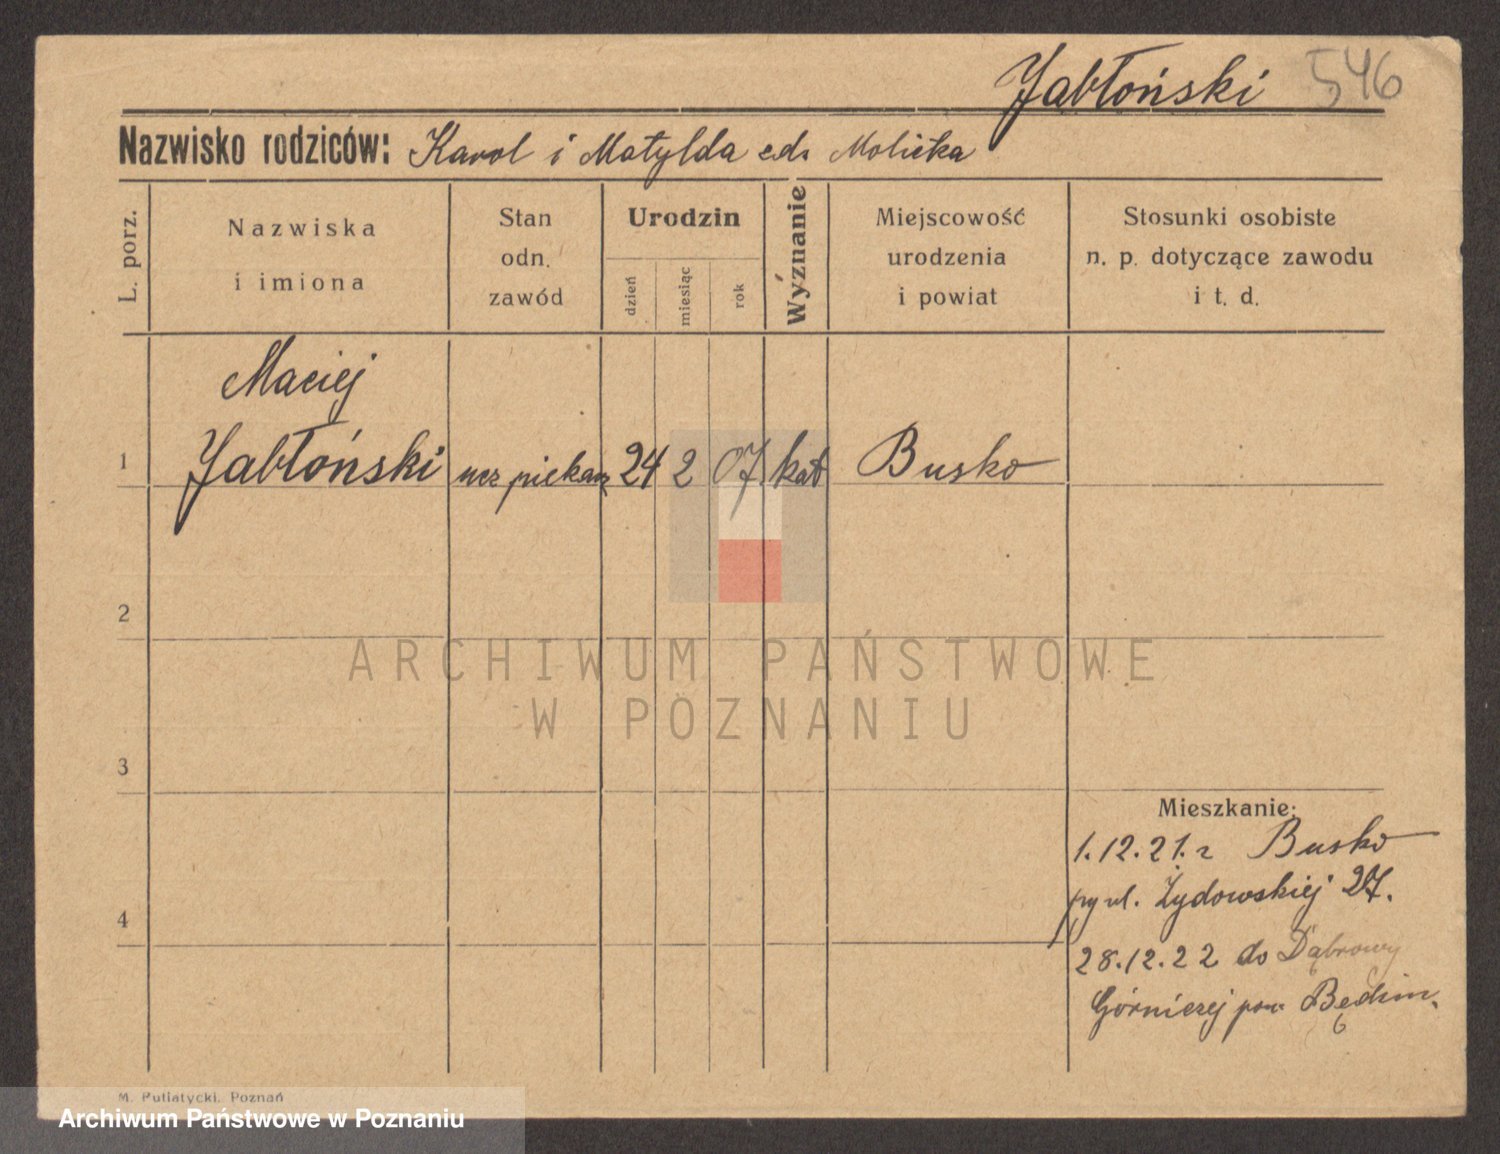 Jabłoński 546
Nazwisko rodziców: Karol i Matylda Molicka
L. porz.
Nazwiska
i imiona
Stan
odn.
zawód
Urodzin
dzień
miesiąc
rok
Wyznanie
Miejscowość
urodzenia
i powiat
Stosunki osobiste
n. p. dotyczące zawodu
i t. d.
Maciej
1 Jabłoński ucz piekarz 24 2 07 kat Busko
2
ARCHIWUM PAŃSTWOWE
W POZNANIU
3
Mieszkanie:
1.12.21. z Busko
ul. Żydowskiej 27.
4
28.12.22 do Dąbrowy
Górniczej pow. Będzin.
M. Putiatycki, Poznań
Archiwum Państwowe w Poznaniu